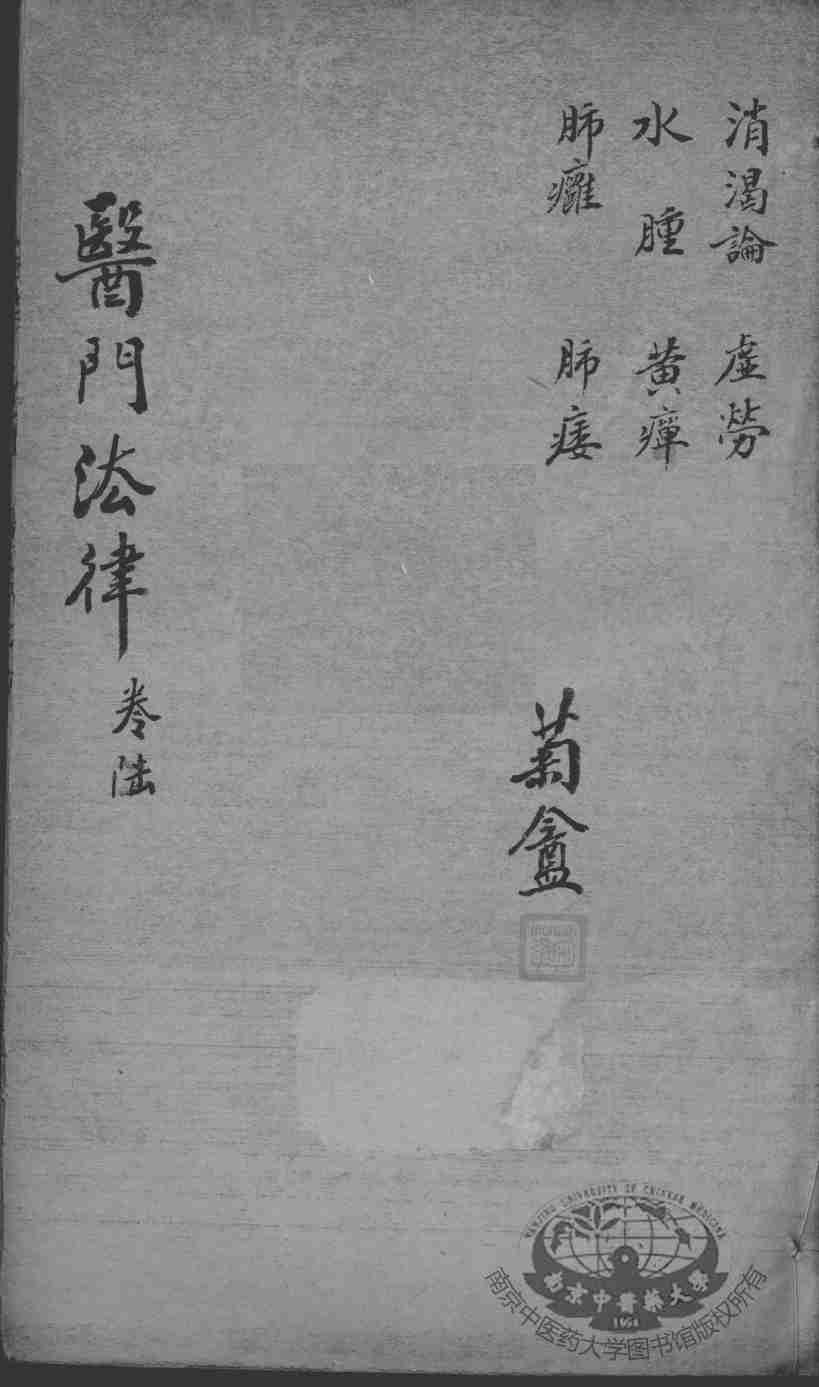 消渴論 虛勞
水腫 黃瘅
肺癰 肺痿
菊盦
醫門法律 卷陸
NANJING UNIVERSITY OF CHINESE MEDICINE
南京中醫藥大學
1954
南京中医药大学图书馆版权所有